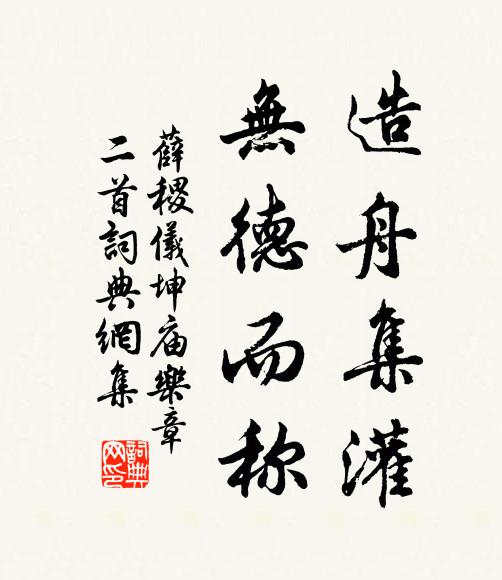 造舟集灌
無德而称
薛稷儀坤庙樂章
二首詞典網集
詞典
网印